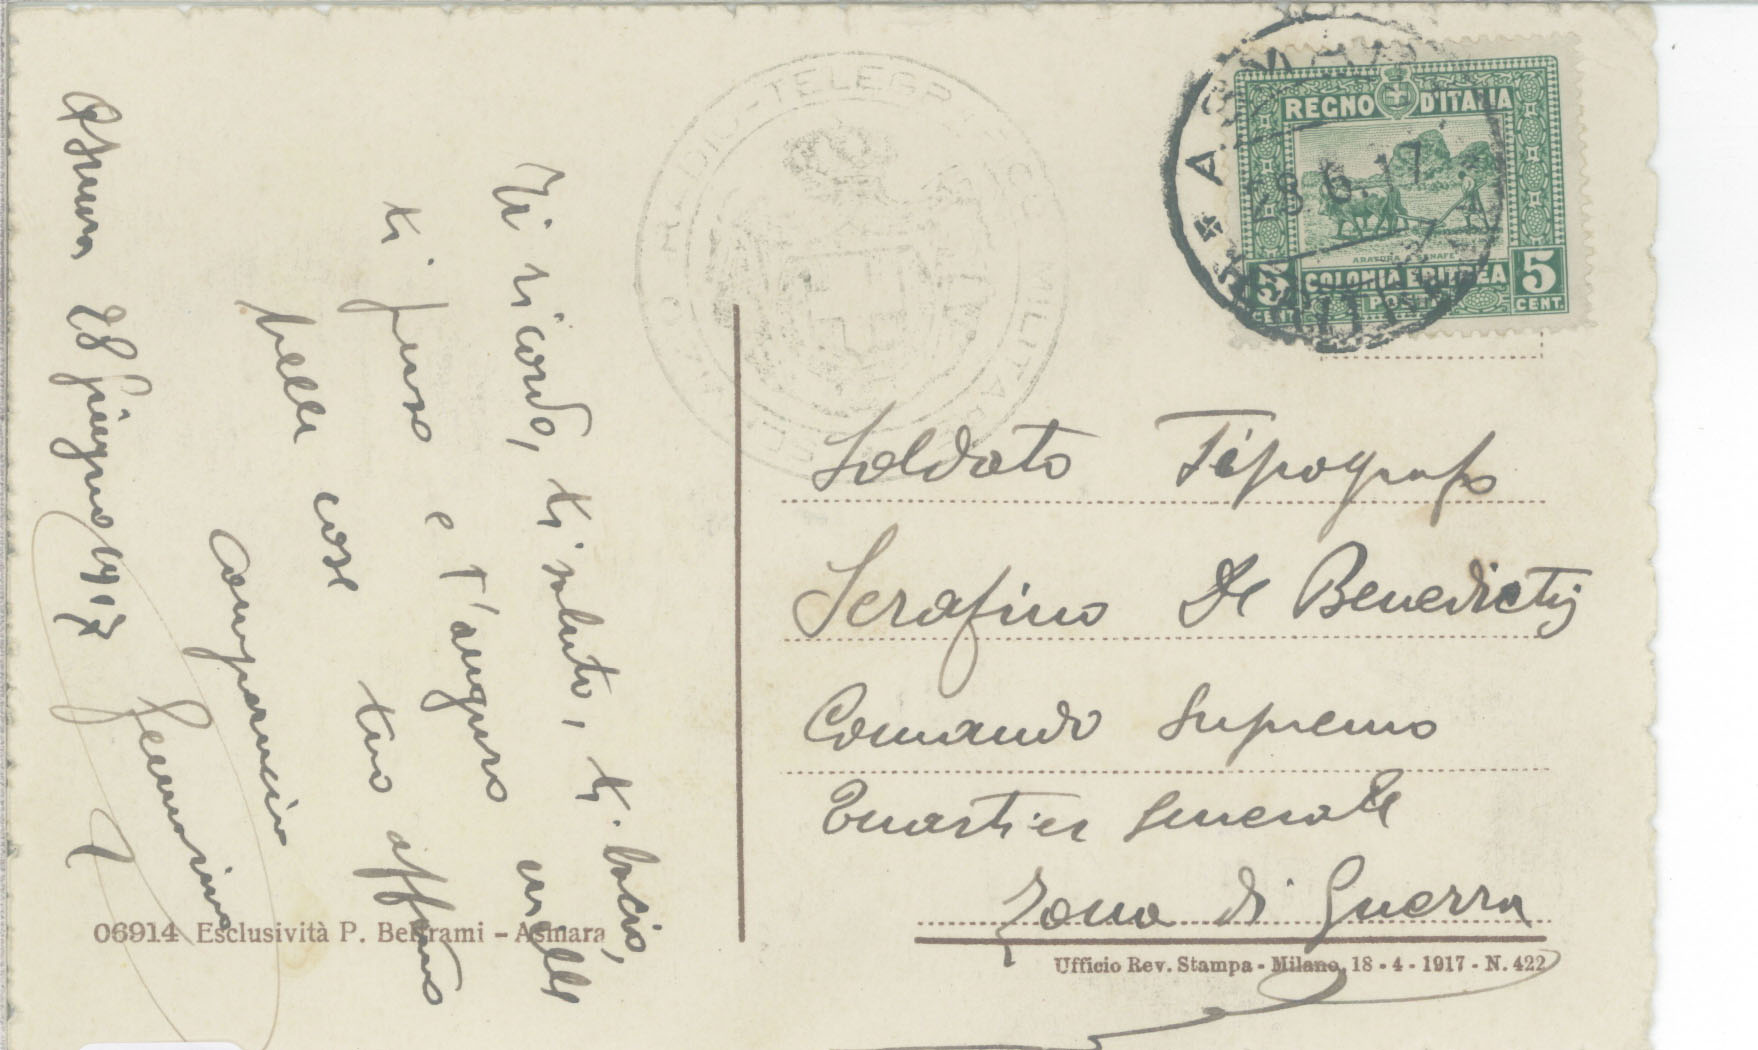 Asmara 28 Giugno 1917
Ti ricordo, ti saluto, ti bacio,
ti penso e t'auguro mille
belle cose tuo affmo
RADIO-TELEGRAFICO MILITARE
ASMARA
28.6.17
REGNO D'ITALIA
ARATURA
5 COLONIA ERITREA 5
CENT. POSTE CENT.
Soldato Tipografo
Serafino De Benedictis
Comando Supremo
Quartier Generale
Zona di Guerra
06914 Esclusività P. Beltrami - Asmara
Ufficio Rev. Stampa - Milano, 18 - 4 - 1917 - N. 422